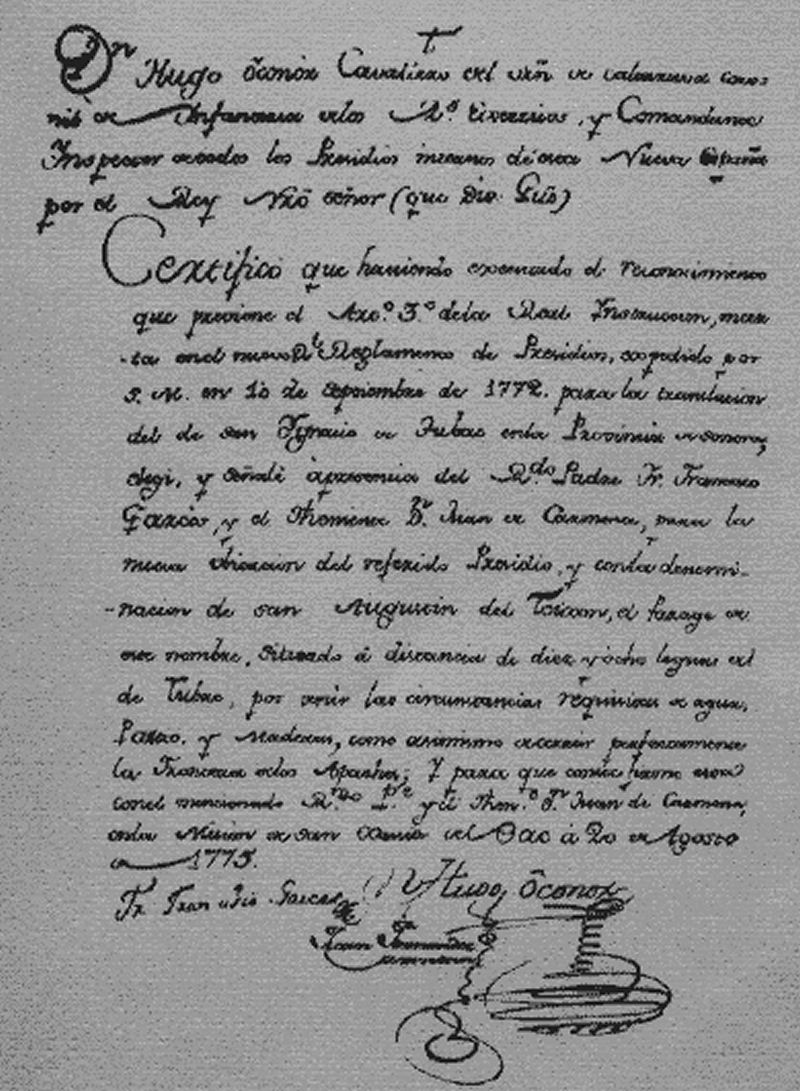 †
Dn Hugo Oconor Cavallero del Orn de Calatrava Coro-
nel de Infanteria de los Rs Exercitos, y Comandante
Inspector de todos los Presidios internos de esta Nueva España
por el Rey Nrō señor (que Dios Gūe)
Certifico que haviendo executado el reconocimiento
que previene el Arto. 3.o de la Real Instruccion, inser-
ta en el nuevo Rl Reglamento de Presidios, expedido por
S. M. en 10 de Septiembre de 1772. para la translacion
del de san Ygnacio de Tubac en la Provincia de sonora,
elegi, y señalè à presencia del Rdo Padre Fr. Francisco
Garcès, y el Theniente Dn. Juan de Carmona, para la
nueva ubicacion del referido Presidio, y con la denomi-
-nacion de san Augustin del Toixon, el Parage de
este nombre, situado à distancia de diez y ocho leguas del
de Tubac, por unir las circunstancias requisitas de agua,
Pasto, y Maderas, como asimismo de cerrar perfectamente
la Frontera de los Apaches; Y para que conste firmè esta
con el mencionado Rndo Pe y el Thne Dn Juan de Carmona,
en la Mision de san del Bac à 20 de Agosto
de 1775.
Fr Fran cisco Garces
Hugo Oconor
Juan Fernandez
Carmona